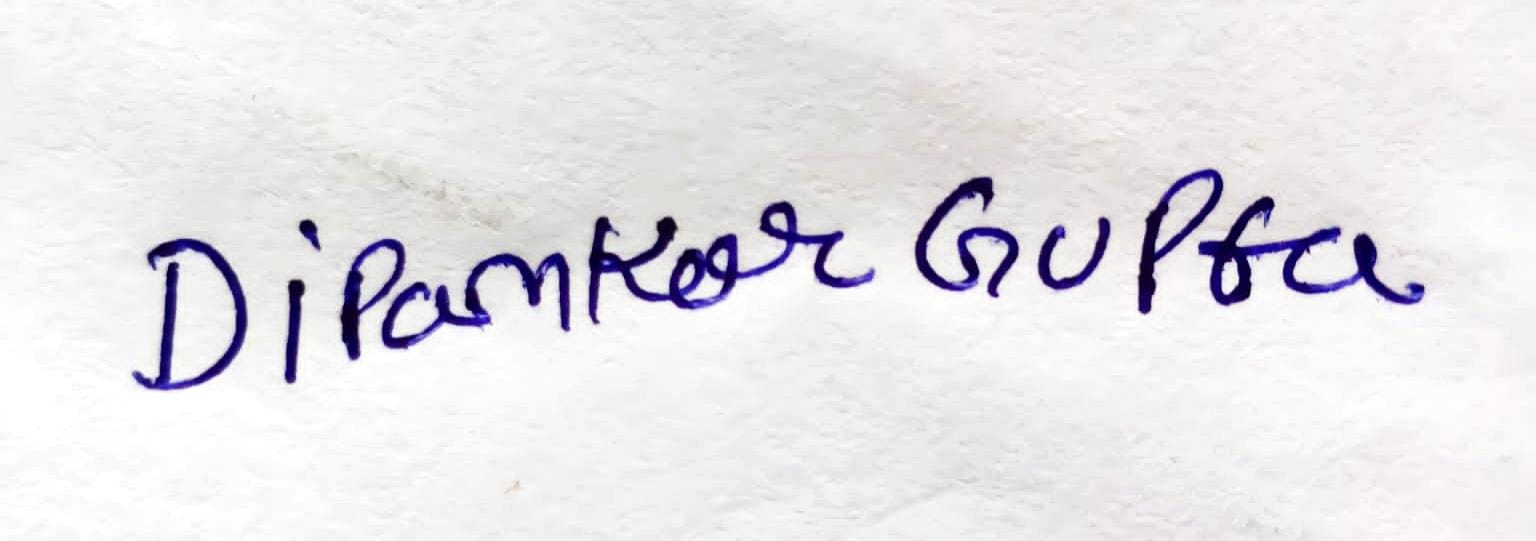 Dipankar Gupta